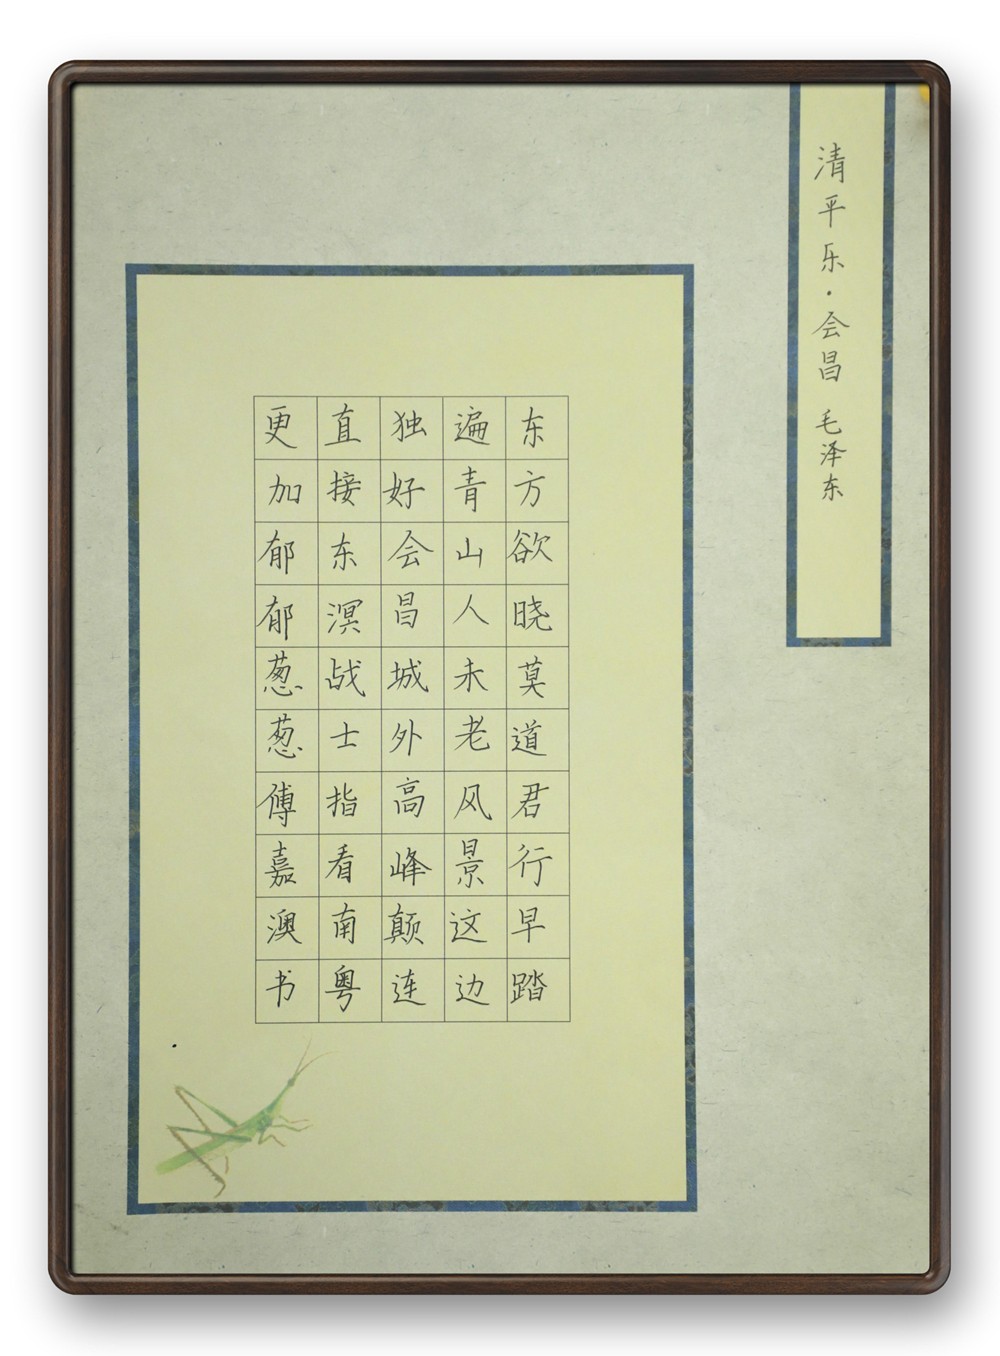 清平乐·会昌 毛泽东
东方欲晓莫道君行早踏
遍青山人未老风景这边
独好会昌城外高峰颠连
直接东溟战士指看南粤
更加郁郁葱葱傅嘉澳书